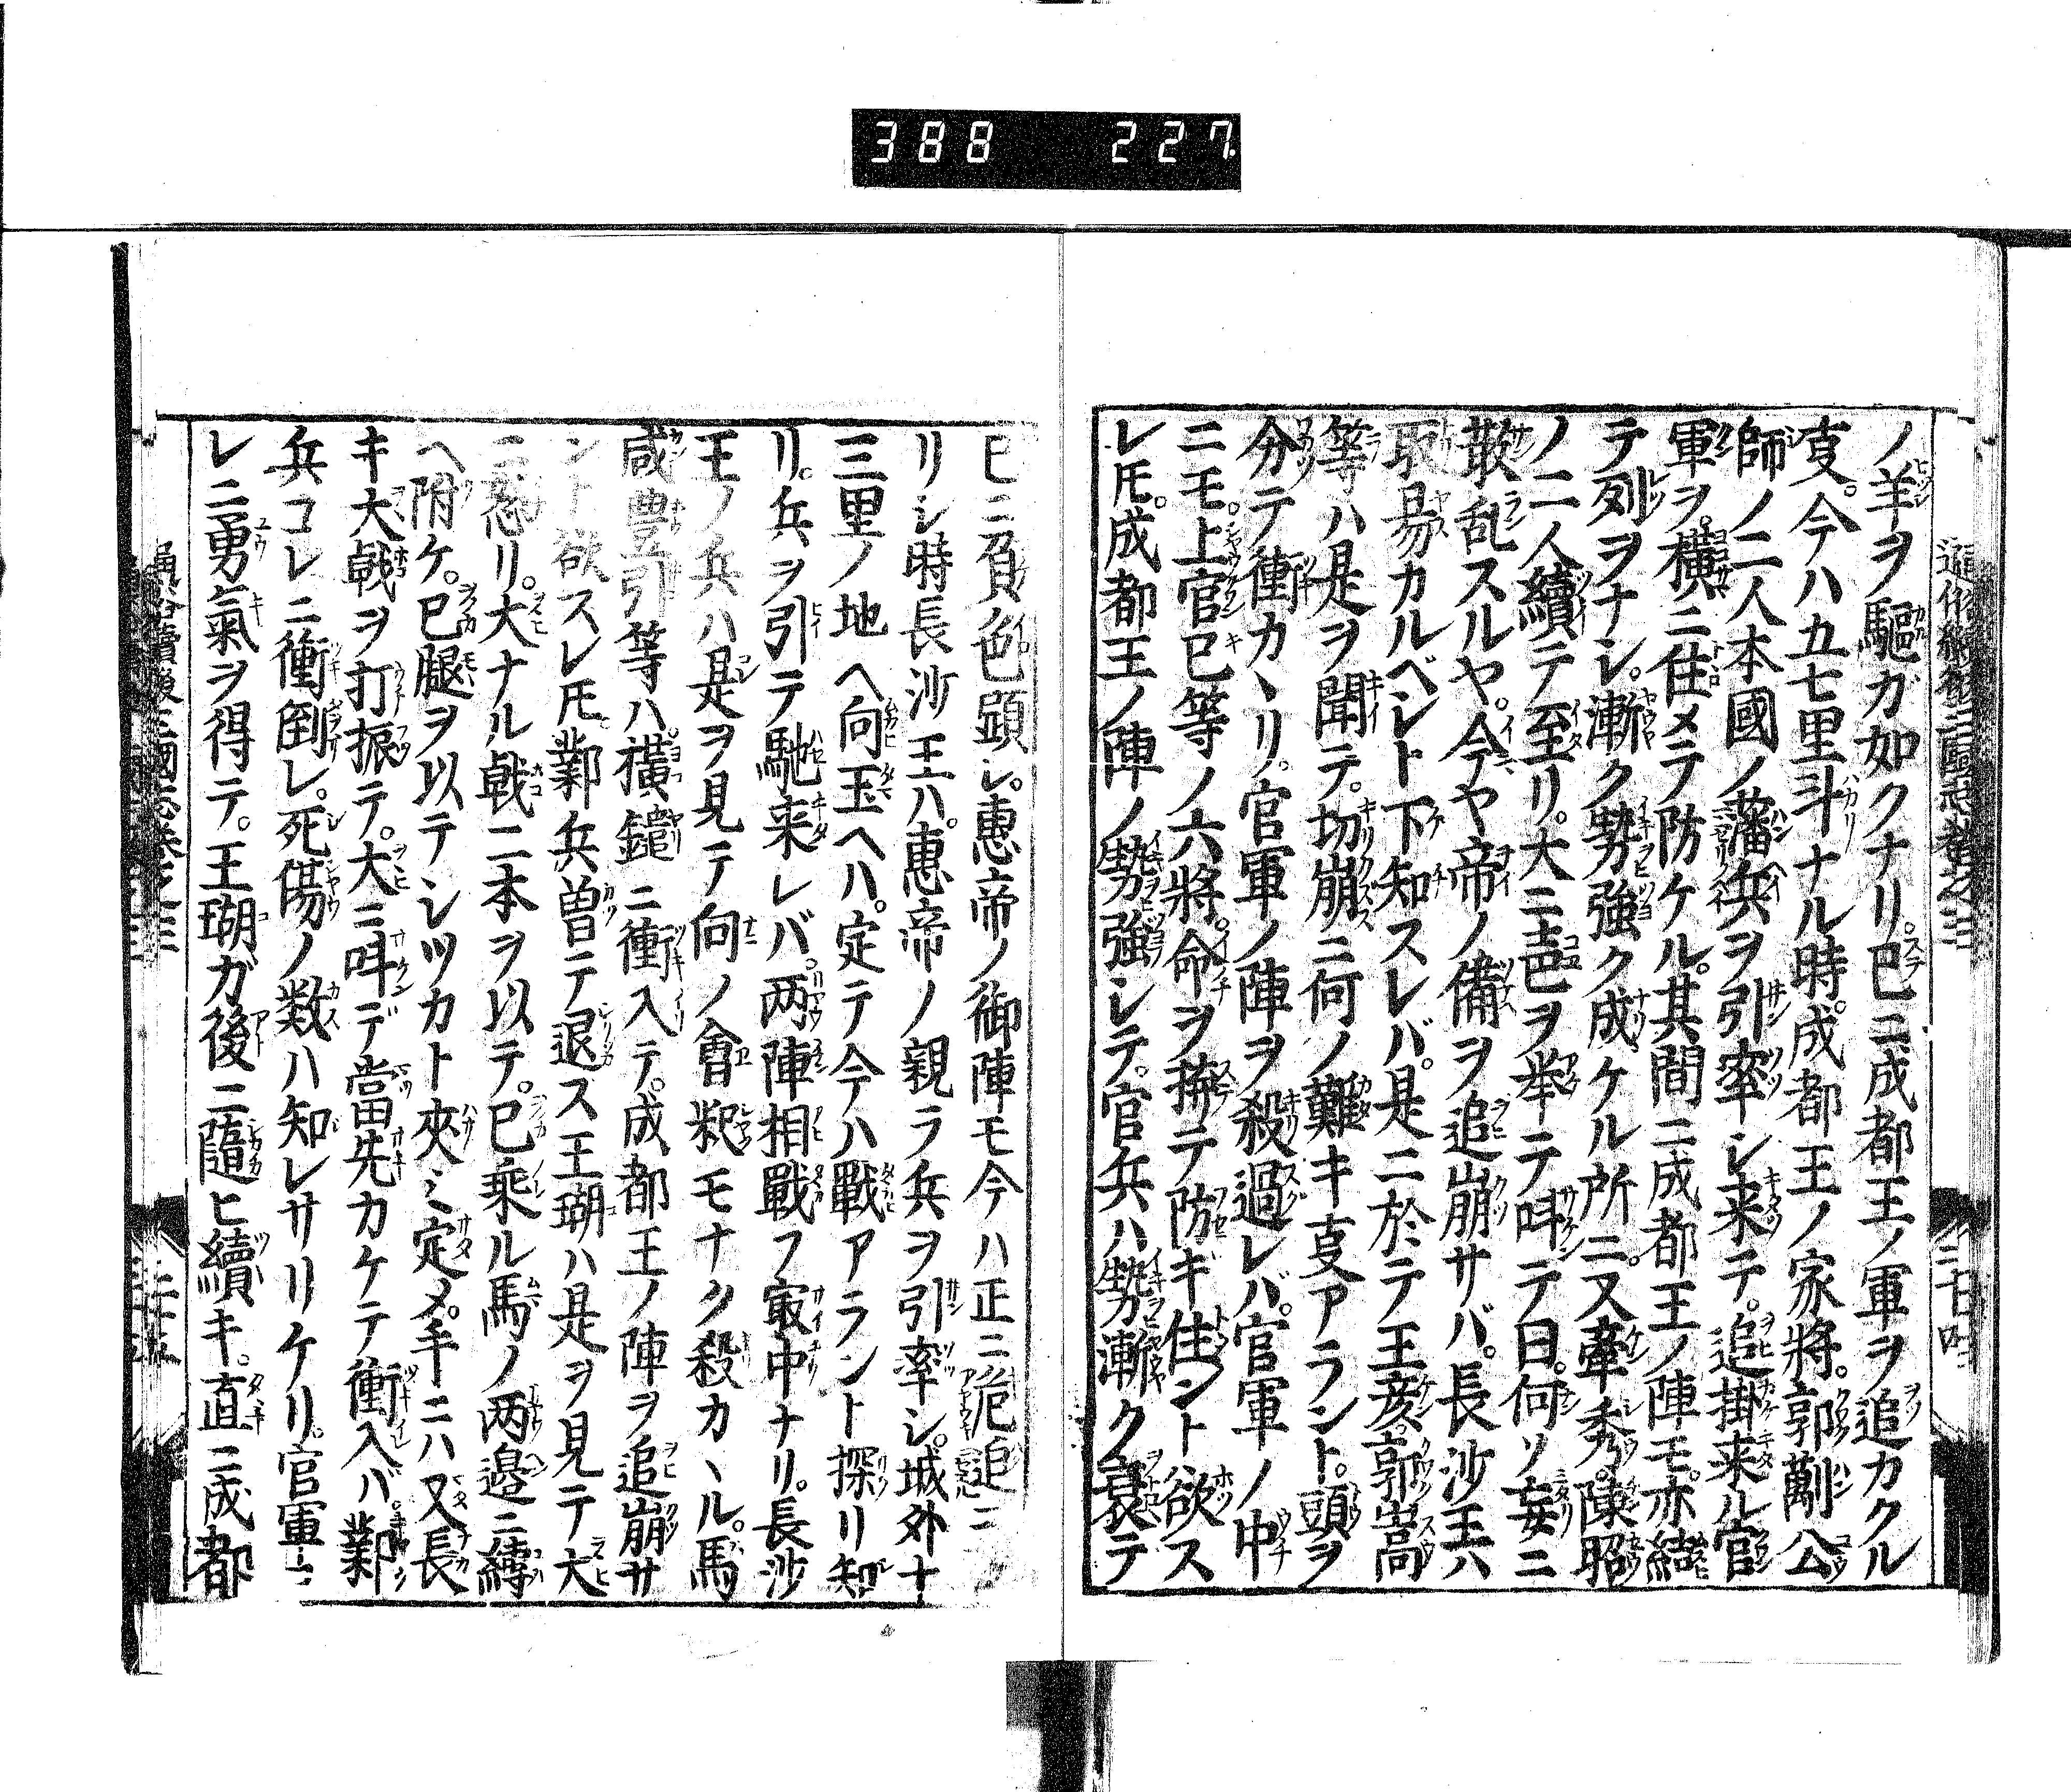 388 227
ノ羊ヲ驅ガ如クナリ。已ニ成都王ノ軍ヲ追カクル
㕝。今ハ五七里斗ナル時。成都王ノ家將。郭勱公
師ノ二人本國ノ藩兵ヲ引率シ来テ。追掛来ル官
軍ヲ。橫ニ住メテ防ケル。其間ニ成都王ノ陣モ。亦結
テ列ヲナシ。漸ク勢強ク成ケル所ニ。又牽秀。陳昭
ノ二人續テ至リ。大ニ声ヲ挙テ呌テ曰。何ソ妄ニ
散乱スルヤ。今ヤ帝ノ備ヲ追崩サバ。長沙王ハ
取易カルベシト下知スレバ。是ニ於テ王彦郭嵩
等ハ是ヲ聞テ。切崩ニ何ノ難キ㕝アラント。頭ヲ
分テ衝カヽリ。官軍ノ陣ヲ殺過レバ。官軍ノ中
ニモ。上官已等ノ六將。命ヲ捨テ防ギ住ント欲ス
レ𪜈。成都王ノ陣ノ勢強シテ。官兵ハ勢漸ク衰テ
已ニ負色顕シ。惠帝ノ御陣モ今ハ正ニ危追ニ
リシ時長沙王ハ。惠帝ノ親ラ兵ヲ引率シ。城外十
三里ノ地ヘ向玉ヘハ。定テ今ハ戰アラント探リ知
リ。兵ヲ引テ馳来レバ。两陣相戰フ㝡中ナリ。長沙
王ノ兵ハ是ヲ見テ向ノ會釈モナク殺カヽル。馬
咸豊引等ハ。横鑓ニ衝入テ。成都王ノ陣ヲ追崩サ
ント欲スレ𪜈。鄴兵曽テ退ス王瑚ハ是ヲ見テ大
ニ怒リ。大ナル戟二本ヲ以テ。已乘ル馬ノ两邉ニ縛
ヘ附ケ。已腿ヲ以テシツカト夾ミ定メ。手ニハ又長
キ大戟ヲ打振テ。大ニ呌デ當先カケテ衝入バ。鄴
兵コレニ衝倒レ。死傷ノ数ハ知レサリケリ。官軍
レニ勇氣ヲ得テ。王瑚ガ後ニ隨ヒ續キ。直ニ成都